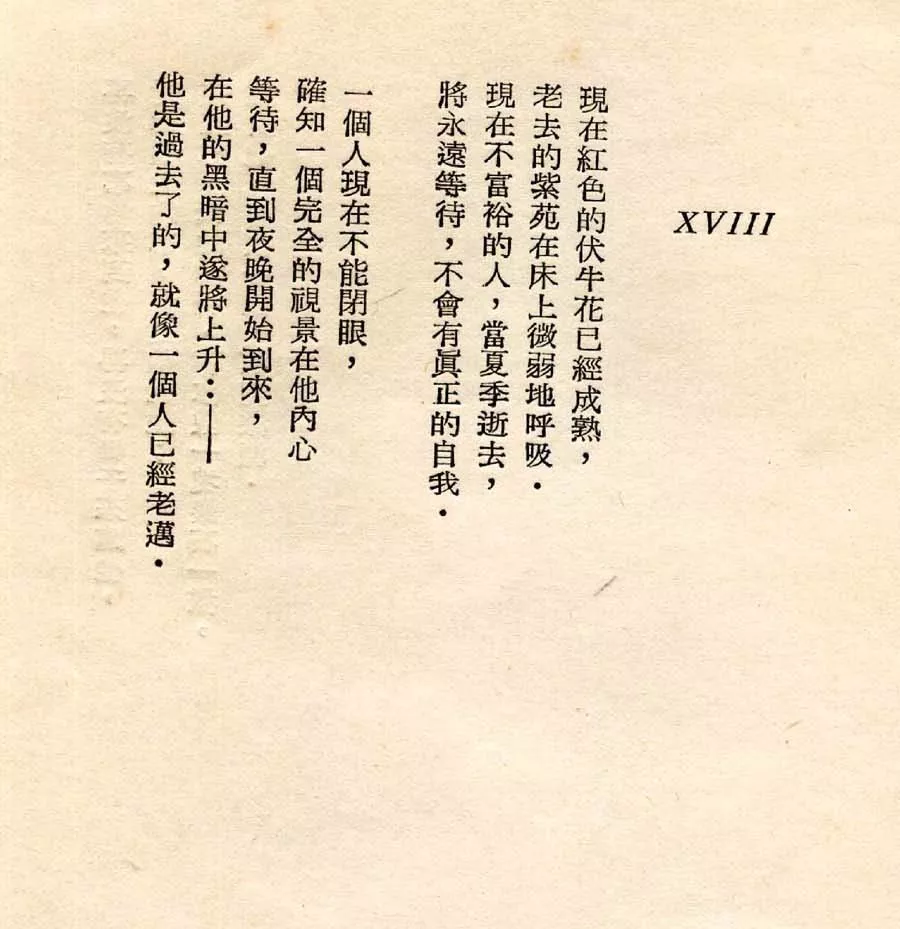 XVIII
現在紅色的伏牛花已經成熟，
老去的紫苑在床上微弱地呼吸．
現在不富裕的人，當夏季逝去，
將永遠等待，不會有眞正的自我．
一個人現在不能閉眼，
確知一個完全的視景在他內心
等待，直到夜晚開始到來，
在他的黑暗中遂將上升：——
他是過去了的，就像一個人已經老邁．